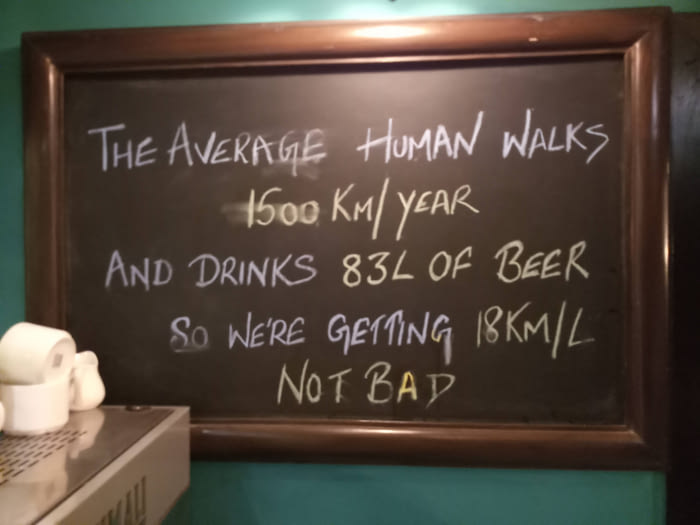 THE AVERAGE HUMAN WALKS
1500 KM/YEAR
AND DRINKS 83L OF BEER
SO WE'RE GETTING 18KM/L
NOT BAD